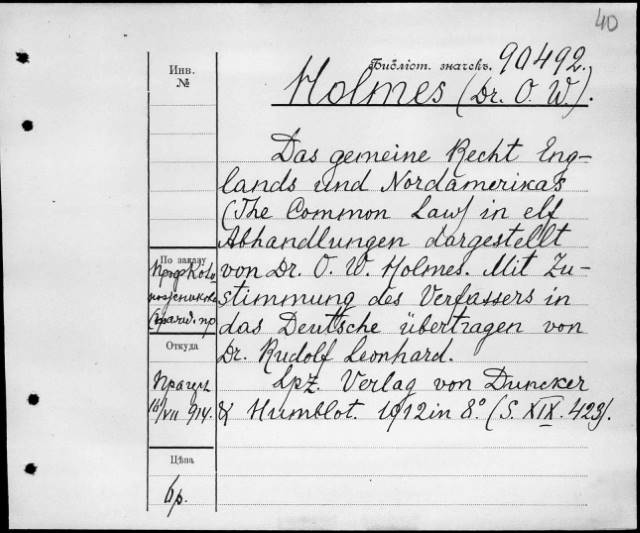 40
Инв.
№
Библіот. значекъ. 90492.
Holmes (Dr. O. W.).
Das gemeine Recht Eng-
lands und Nordamerikas
(The Common Law) in elf
Abhandlungen dargestellt
von Dr. O. W. Holmes. Mit Zu-
stimmung des Verfassers in
das Deutsche übertragen von
Dr. Rudolf Leonhard.
Lpz. Verlag von Duncker
& Humblot. 1912 in 8° (S. XIX. 423).
По заказу
Проф.
Откуда
16/VII 914.
Цѣна
6р.